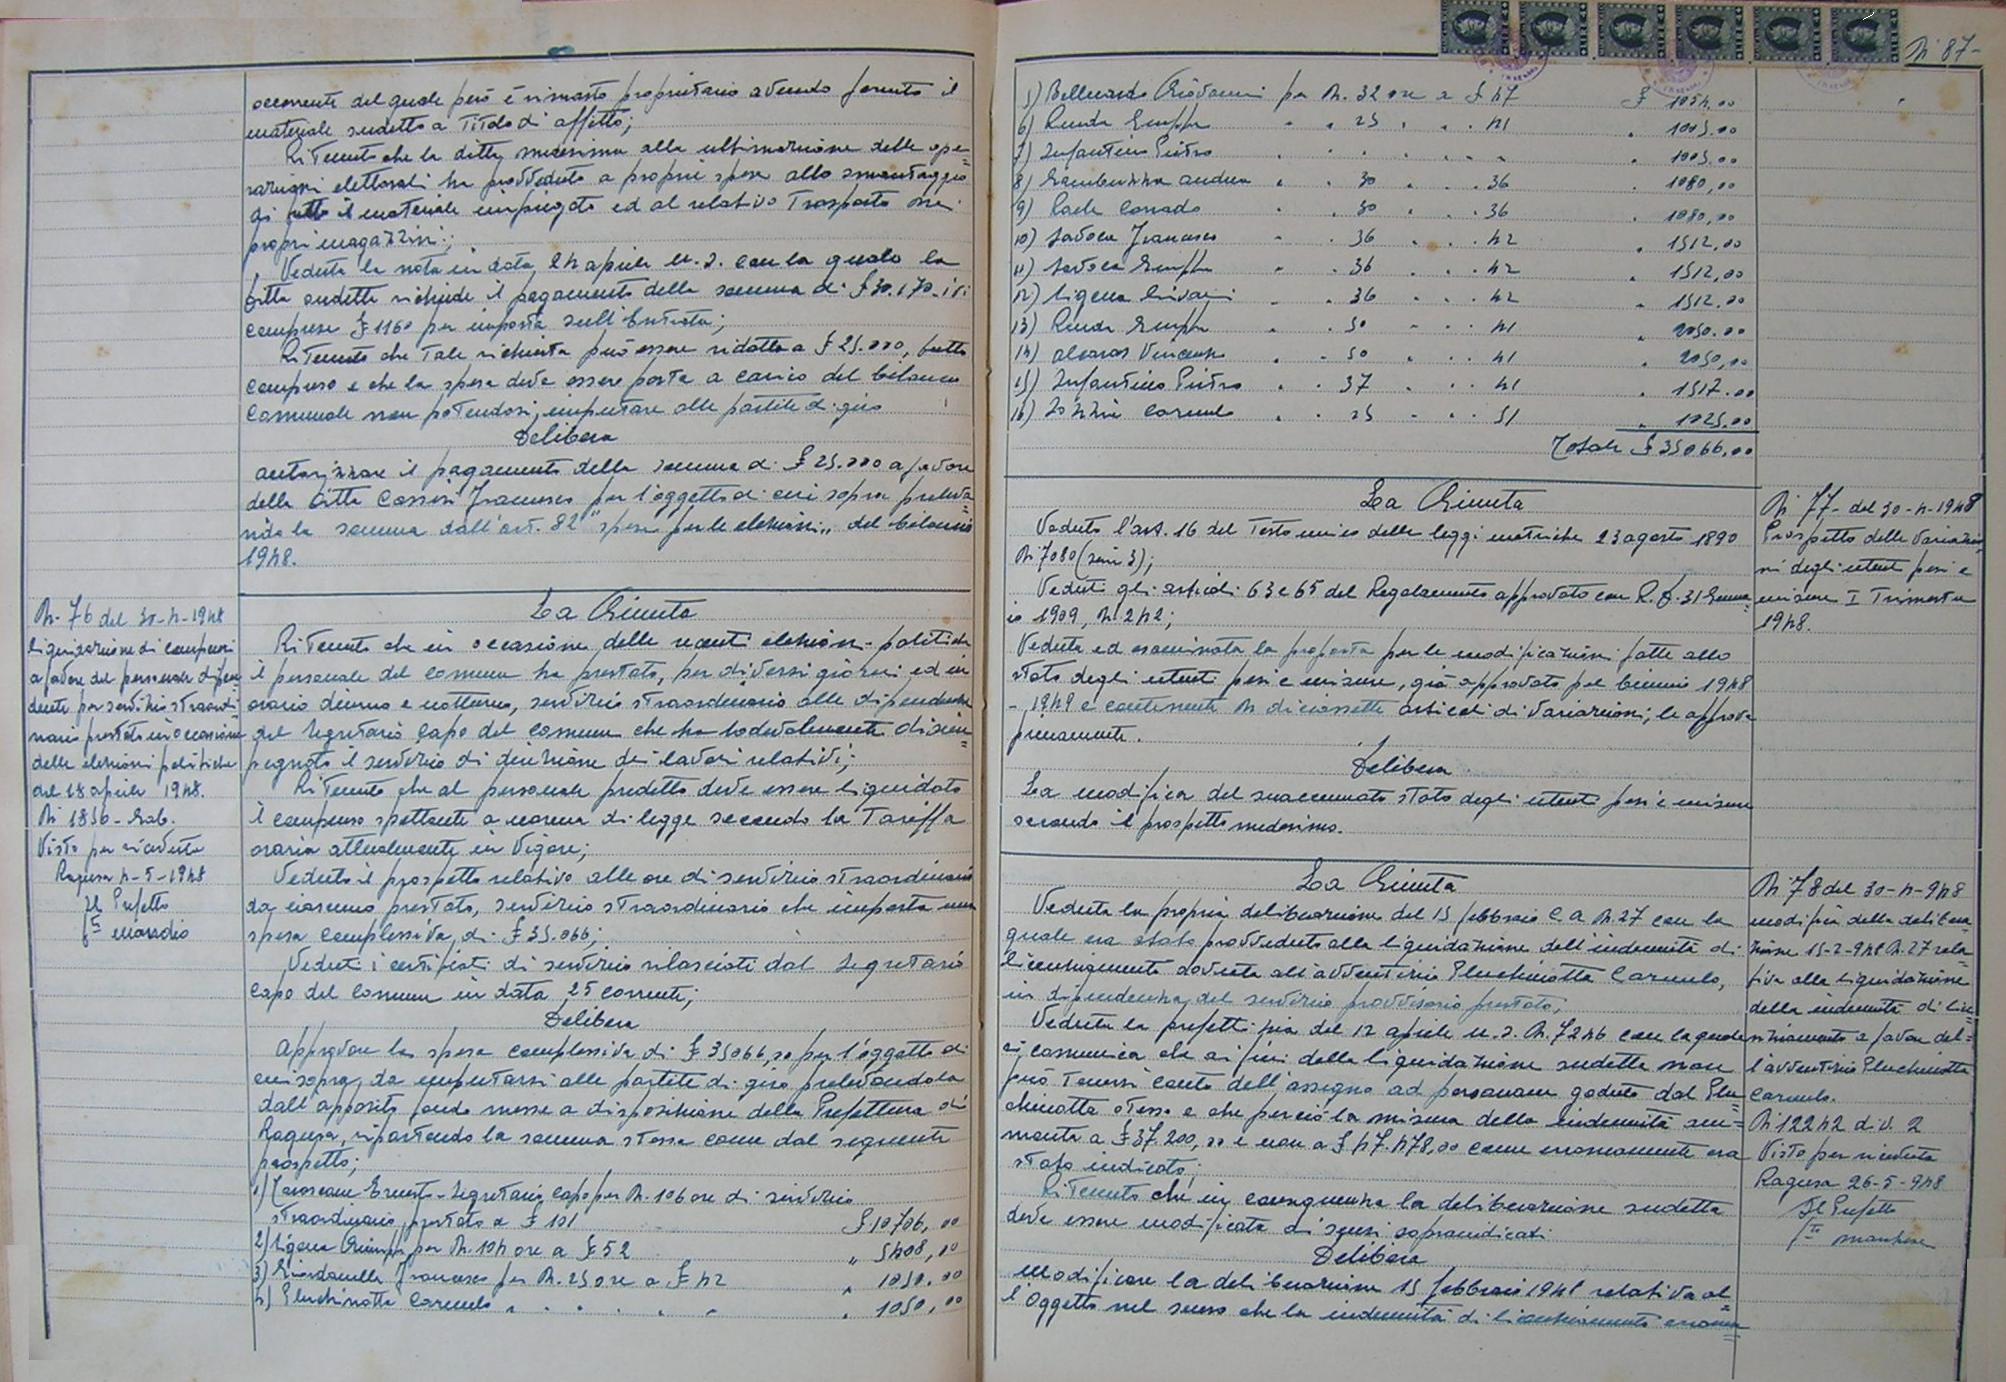 occorrente del quale però è rimasto proprietario avendo fornito il
materiale sudetto a titolo di affitto;
Ritenuto che la ditta medesima alla ultimazione delle ope=
razioni elettorali ha provveduto a proprie spese allo smontaggio
di tutto il materiale impiegato ed al relativo trasporto nei
propri magazzini;
Veduta la nota in data 24 aprile u.s. con la quale la
ditta sudetta richiede il pagamento della somma di £ 30.170 ivi
comprese £ 1160 per imposta sull'Entrata;
Ritenuto che tale richiesta può essere ridotta a £ 25.000, tutto
compreso e che la spesa deve essere posta a carico del bilancio
Comunale non potendosi imputare alle partite di giro
Delibera
autorizzare il pagamento della somma di £ 25.000 a favore
della ditta Francesco per l'oggetto di cui sopra preleva
ndo la somma dall'art. 82 "spese per le elezioni" del bilancio
1948.
N. 76 del 30-4-1948
liquidazione di compensi
a favore del personale dipen
dente per servizio straordi
nario prestato in occasione
delle elezioni politiche
del 18 aprile 1948.
N. 1856 - Gab.
Visto per ricevuta
Ragusa 4-5-1948
Il Prefetto
La Giunta
Ritenuto che in occasione delle recenti elezioni politiche
il personale del comune ha prestato, per diversi giorni ed in
orario diurno e notturno, servizio straordinario alle dipendenze
del Segretario Capo del Comune che ha lodevolmente disim=
pegnato il servizio di direzione dei lavori relativi;
Ritenuto che al personale predetto deve essere liquidato
il compenso spettante a norma di legge secondo la tariffa
oraria attualmente in vigore;
Veduto il prospetto relativo alle ore di servizio straordinario
da ciascuno prestato, servizio straordinario che importa una
spesa complessiva di £ 35.066;
Veduti i certificati di servizio rilasciati dal Segretario
Capo del Comune in data 25 corrente;
Delibera
Approvare la spesa complessiva di £ 35066,00 per l'oggetto di
cui sopra, da imputarsi alle partite di giro prelevandola
dall'apposito fondo messo a disposizione della Prefettura di
Ragusa, ripartendo la somma stessa come dal seguente
prospetto;
1) Ernesto - Segretario Capo per N. 106 ore di servizio
straordinario prestato a £ 101 £ 10706,00
2) Ligena per N. 104 ore a £ 52 " 5408,00
3) Giordanella Francesco per N. 25 ore a £ 42 " 1050,00
4) Pluchinotta Carmelo " 1050,00
N. 87-
5) Giovanni per N. 32 ore a £ 47 £ 1054,00
6) Runda " " 25 " " " 41 " 1005.00
7) Infantino Pietro " 1005.00
8) Andrea " " 30 " " " 36 " 1080,00
9) Corrado " " 30 " " " 36 " 1080,00
10) Savoca Francesco " " 36 " " " 42 " 1512,00
11) Savoca " " 36 " " " 42 " 1512,00
12) Ligena " " 36 " " " 42 " 1512.00
13) Runda " " 50 " " " 41 " 2050.00
14) Vincenzo " " 50 " " " 41 " 2050,00
15) Infantino Pietro " " 37 " " " 41 " 1517.00
16) Carmelo " " 25 " " " 51 " 1025,00
Totale £ 35066,00
La Giunta
Veduto l'art. 16 del Testo unico delle leggi metriche 23 agosto 1890
N. 7080 (serie 3);
Veduti gli articoli 63 e 65 del Regolamento approvato con R.D. 31 Genna=
io 1909, N. 242;
Veduta ed esaminata la proposta per le modificazioni fatte allo
stato degli utenti pesi e misure, già approvato pel biennio 1948
- 1949 e contenente N. diciassette articoli di variazioni, le approva
pienamente.
Delibera
La modifica del suaccennato stato degli utenti pesi e misure
secondo il prospetto medesimo.
N. 77 - del 30-4-1948
Prospetto delle variazio
ni degli utenti pesi e
misure I Trimestre
1948.
La Giunta
Veduta la propria deliberazione del 15 febbraio c.a. N. 27 con la
quale era stato provveduto alla liquidazione dell'indennità di
licenziamento dovuta all'avventizio Pluchinotta Carmelo,
in dipendenza del servizio provvisorio prestato;
Veduta la prefettizia del 12 aprile u.s. N. 7246 con la quale
si comunica che ai fini della liquidazione sudetta non
può tenersi conto dell'assegno ad personam goduto dal Plu=
chinotta stesso e che perciò la misura della indennità am=
monta a £ 37.200,00 e non a £ 47.478,00 come erroneamente era
stato indicato;
Ritenuto che in conseguenza la deliberazione sudetta
deve essere modificata ai sensi sopraindicati
Delibera
Modificare la deliberazione 15 febbraio 1948 relativa al=
l'oggetto nel senso che la indennità di licenziamento
N. 78 del 30-4-948
modifica della delibera
zione 15-2-948 N. 27 rela=
tiva alla liquidazione
della indennità di lice=
nziamento a favore del=
l'avventizio Pluchinotta
Carmelo.
N. 12242 div. 2
Visto per ricevuta
Ragusa 26-5-948
Il Prefetto